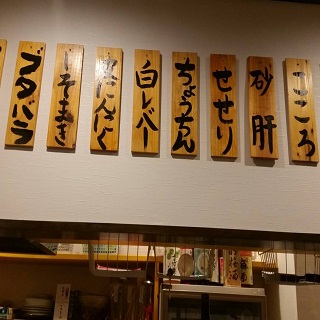 こころ
砂肝
せせり
ちょうちん
白レバー
にんにく
しそまき
ブタバラ